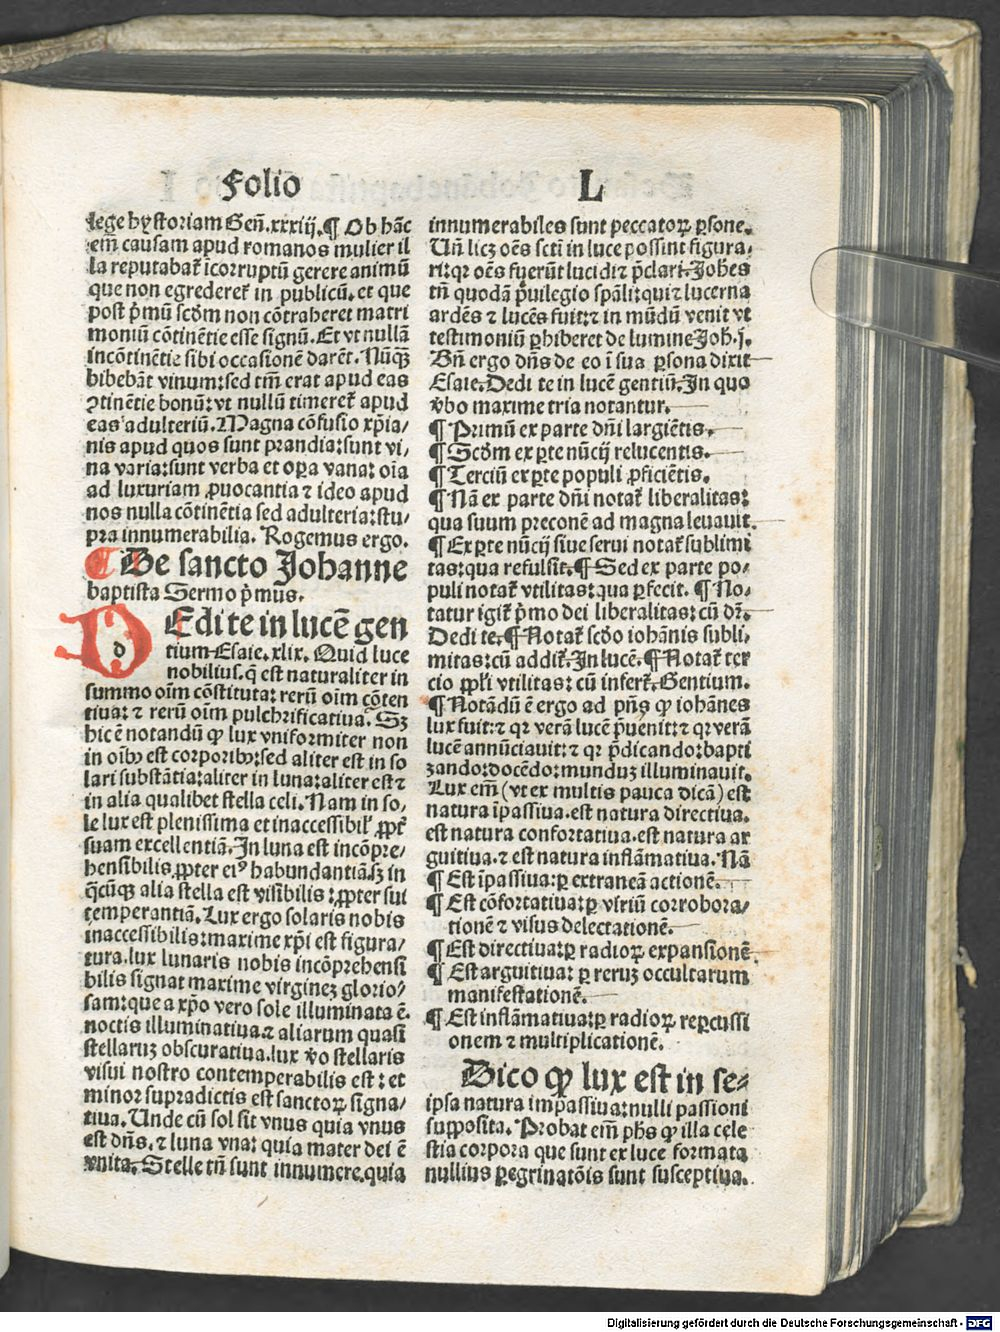 Folio L
lege hystoriam Geñ.xxxiij.¶ Ob hãc
em̃ causam apud romanos mulier il
la reputabat̃ ĩcorruptũ gerere animũ
que non egrederet̃ in publicũ. et que
post p̃mũ scðm non cõtraheret matri
moniũ cõtinẽtie esse signũ. Et vt nullã
incõtinẽtie sibi occasionẽ darẽt. Nũqꝫ
bibebãt vinum: sed tm̃ erat apud eas
ꝯtinẽtie bonũ: vt nullũ timeret̃ apud
eas adulteriũ. Magna cõfusio xp̃ia/
nis apud quos sunt prandia: sunt vi/
na varia: sunt verba et oꝑa vana: oĩa
ad luxuriam ꝓuocantia ⁊ ideo apud
nos nulla cõtinẽtia sed adulteria: stu/
pra innumerabilia. Rogemus ergo.
¶ De sancto Johanne
baptista Sermo p̃mus.
D d Edi te in lucẽ gen
tium Esaie. xlix. Quid luce
nobilius. q̃ est naturaliter in
summo oĩm cõstituta: rerũ oĩm cõten
tiua: ⁊ rerũ oĩm pulchrificatiua. Sꝫ
hic ẽ notandũ ꝙ lux vniformiter non
in oĩbꝰ est corporibꝰ: sed aliter est in so
lari substãtia: aliter in luna: aliter est ⁊
in alia qualibet stella celi. Nam in so/
le lux est plenissima et inaccessibil̃ ꝓpt̃
suam excellentiã. In luna est incõpre/
hensibilis ꝓpter eiꝰ habundantiã. sꝫ in
q̃cũqꝫ alia stella est visĩbilis: ꝓpter sui
temperantiã. Lux ergo solaris nobis
inaccessibilis: maxime xp̃i est figura/
tura. lux lunaris nobis incõprehensi
bilis signat maxime virginez glorio/
sam: que a xp̃o vero sole illuminata ẽ.
noctis illuminatiua. ⁊ aliarum quasi
stellaruꝫ obscuratiua. lux ṽo stellaris
visui nostro contemperabilis est: et
minor supradictis est sanctoꝝ signa/
tiua. Unde cũ sol sit vnus quia vnus
est dñs. ⁊ luna vna: quia mater dei ẽ
vnita. Stelle tñ sunt innumere. quia
innumerabiles sunt peccatoꝝ ꝑsone.
Uñ licꝫ oẽs sctĩ in luce possint figura/
ri: qꝛ oẽs fuerũt lucidi ⁊ p̃clari. Joh̃es
tñ quodã p̃uilegio sp̃ali: qui ⁊ lucerna
ardẽs ⁊ lucẽs fuit: ⁊ in mũdũ venit vt
testimoniũ ꝑhiberet de lumine Joh̃. j.
Bñ ergo dñs de eo ĩ sua ꝑsona dixit
Esaie. Dedi te in lucẽ gentiũ. In quo
ṽbo maxime tria notantur.
¶ Primũ ex parte dñi largiẽtis.
¶ Scðm ex ꝑte nũcij relucentis.
¶ Terciũ ex ꝑte populi ꝓficiẽtis.
¶ Nã ex parte dñi notat̃ liberalitas:
qua suum preconẽ ad magna leuauit.
¶ Ex ꝑte nũcij siue serui notat̃ sublimi
tas: qua refulsit. ¶ Sed ex parte po/
puli notat̃ vtilitas: qua ꝓfecit. ¶ No/
tatur igit̃ p̃mo dei liberalitas: cũ dr̃.
Dedi te. ¶ Notat̃ scðo iohãnis subli/
mitas: cũ addit̃. In lucẽ. ¶ Notat̃ ter
cio ꝓpl̃i vtilitas: cũ infert̃. Gentium.
¶ Notãdũ ẽ ergo ad pñs ꝙ iohãnes
lux fuit: ⁊ qꝛ verã lucẽ p̃uenit: ⁊ qꝛ verã
lucẽ annũciauit: ⁊ qꝛ p̃dicando: bapti
zando: docẽdo: munduꝫ illuminauit.
Lux em̃ (vt ex multis pauca dicã) est
natura ĩpassiua. est natura directiua.
est natura confortatiua. est natura ar
guitiua. ⁊ est natura inflãmatiua. Nã
¶ Est ĩpassiua: ꝑ extraneã actionẽ.
¶ Est cõfortatiua: ꝑ viriũ corrobora/
tionẽ ⁊ visus delectationẽ.
¶ Est directiua: ꝑ radioꝝ expansionẽ.
¶ Est arguitiua: ꝑ reruꝫ occultarum
manifestationẽ.
¶ Est inflãmatiua: ꝑ radioꝝ reꝑcussi
onem ⁊ multiplicationẽ.
Dico ꝙ lux est in se/
ipsa natura impassiua: nulli passioni
supposita. Probat em̃ ph̃s ꝙ illa cele
stia corpora que sunt ex luce formata
nullius ꝑegrinatõis sunt susceptiua.
Digitalisierung gefördert durch die Deutsche Forschungsgemeinschaft - DFG